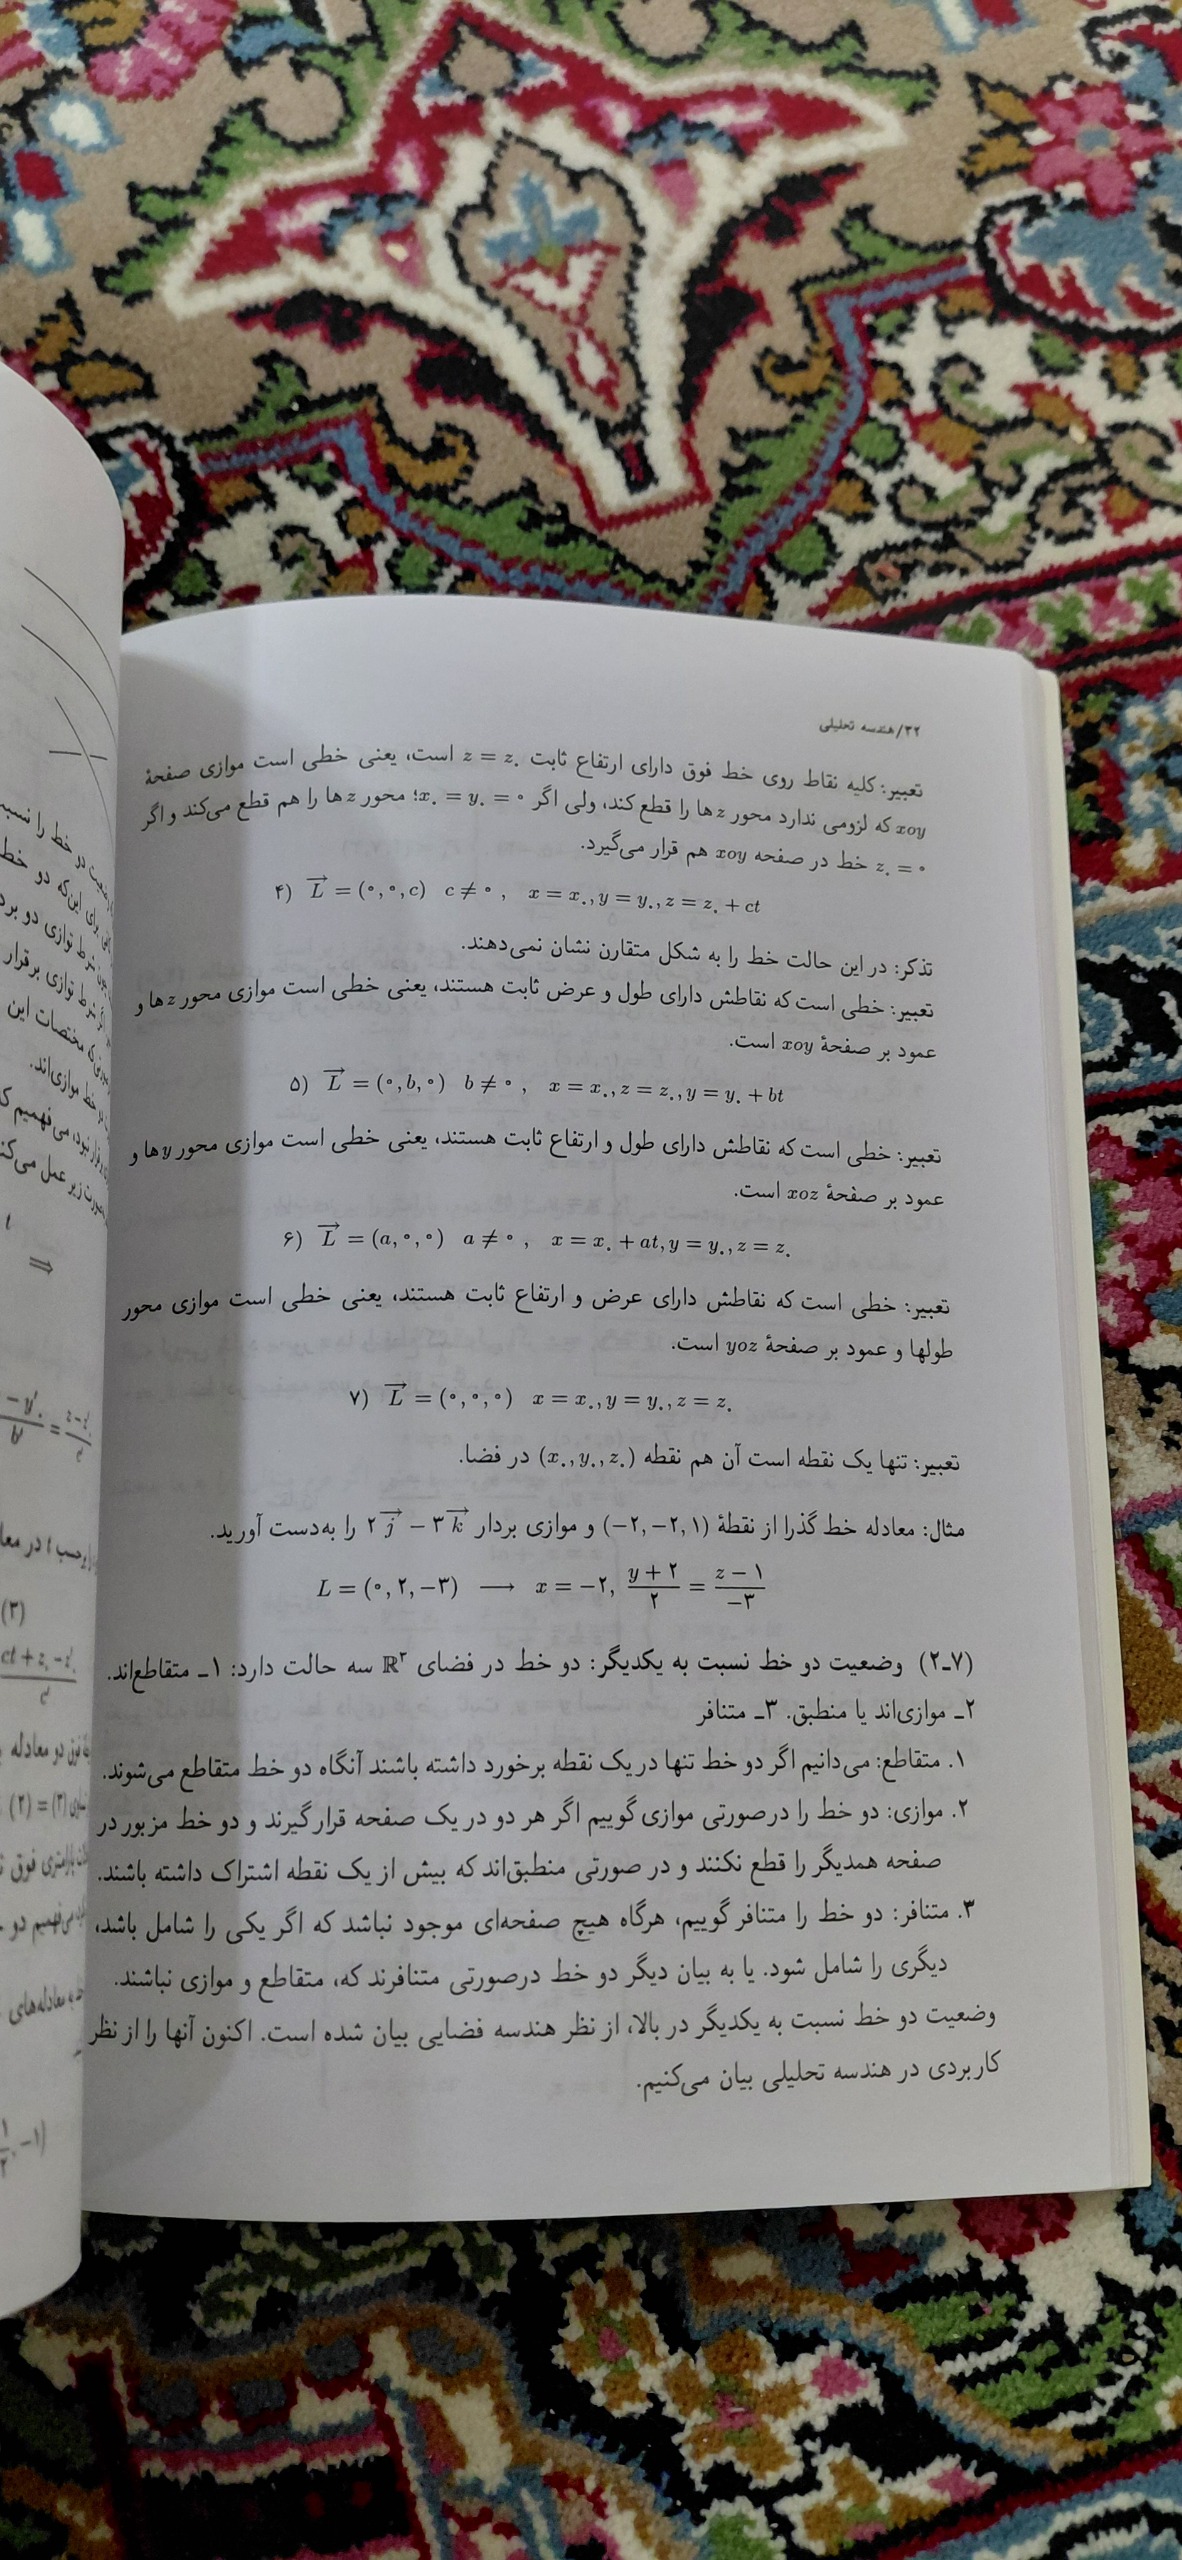 ۳۲/هندسه تحلیلی
تعبیر: کلیه نقاط روی خط فوق دارای ارتفاع ثابت z = z۰ است، یعنی خطی است موازی صفحهٔ
xoy که لزومی ندارد محور z ها را قطع کند، ولی اگر x۰ = y۰ = ۰؛ محور z ها را هم قطع می‌کند و اگر
z۰ = ۰ خط در صفحه xoy هم قرار می‌گیرد.
۴) L⃗ = (۰, ۰, c)  c ≠ ۰ ,  x = x۰, y = y۰, z = z۰ + ct
تذکر: در این حالت خط را به شکل متقارن نشان نمی‌دهند.
تعبیر: خطی است که نقاطش دارای طول و عرض ثابت هستند، یعنی خطی است موازی محور z ها و
عمود بر صفحهٔ xoy است.
۵) L⃗ = (۰, b, ۰)  b ≠ ۰ ,  x = x۰, z = z۰, y = y۰ + bt
تعبیر: خطی است که نقاطش دارای طول و ارتفاع ثابت هستند، یعنی خطی است موازی محور y ها و
عمود بر صفحهٔ xoz است.
۶) L⃗ = (a, ۰, ۰)  a ≠ ۰ ,  x = x۰ + at, y = y۰, z = z۰
تعبیر: خطی است که نقاطش دارای عرض و ارتفاع ثابت هستند، یعنی خطی است موازی محور
طولها و عمود بر صفحهٔ yoz است.
۷) L⃗ = (۰, ۰, ۰)  x = x۰, y = y۰, z = z۰
تعبیر: تنها یک نقطه است آن هم نقطه (x۰, y۰, z۰) در فضا.
مثال: معادله خط گذرا از نقطهٔ (−۲, −۲, ۱) و موازی بردار ۲j⃗ − ۳k⃗ را به‌دست آورید.
L = (۰, ۲, −۳) ⟶ x = −۲, (y + ۲)/۲ = (z − ۱)/−۳
(۲ـ۷) وضعیت دو خط نسبت به یکدیگر: دو خط در فضای ℝ³ سه حالت دارد: ۱ـ متقاطع‌اند.
۲ـ موازی‌اند یا منطبق. ۳ـ متنافر
۱. متقاطع: می‌دانیم اگر دو خط تنها در یک نقطه برخورد داشته باشند آنگاه دو خط متقاطع می‌شوند.
۲. موازی: دو خط را درصورتی موازی گوییم اگر هر دو در یک صفحه قرار گیرند و دو خط مزبور در
صفحه همدیگر را قطع نکنند و در صورتی منطبق‌اند که بیش از یک نقطه اشتراک داشته باشند.
۳. متنافر: دو خط را متنافر گوییم، هرگاه هیچ صفحه‌ای موجود نباشد که اگر یکی را شامل باشد،
دیگری را شامل شود. یا به بیان دیگر دو خط درصورتی متنافرند که، متقاطع و موازی نباشند.
وضعیت دو خط نسبت به یکدیگر در بالا، از نظر هندسه فضایی بیان شده است. اکنون آنها را از نظر
کاربردی در هندسه تحلیلی بیان می‌کنیم.